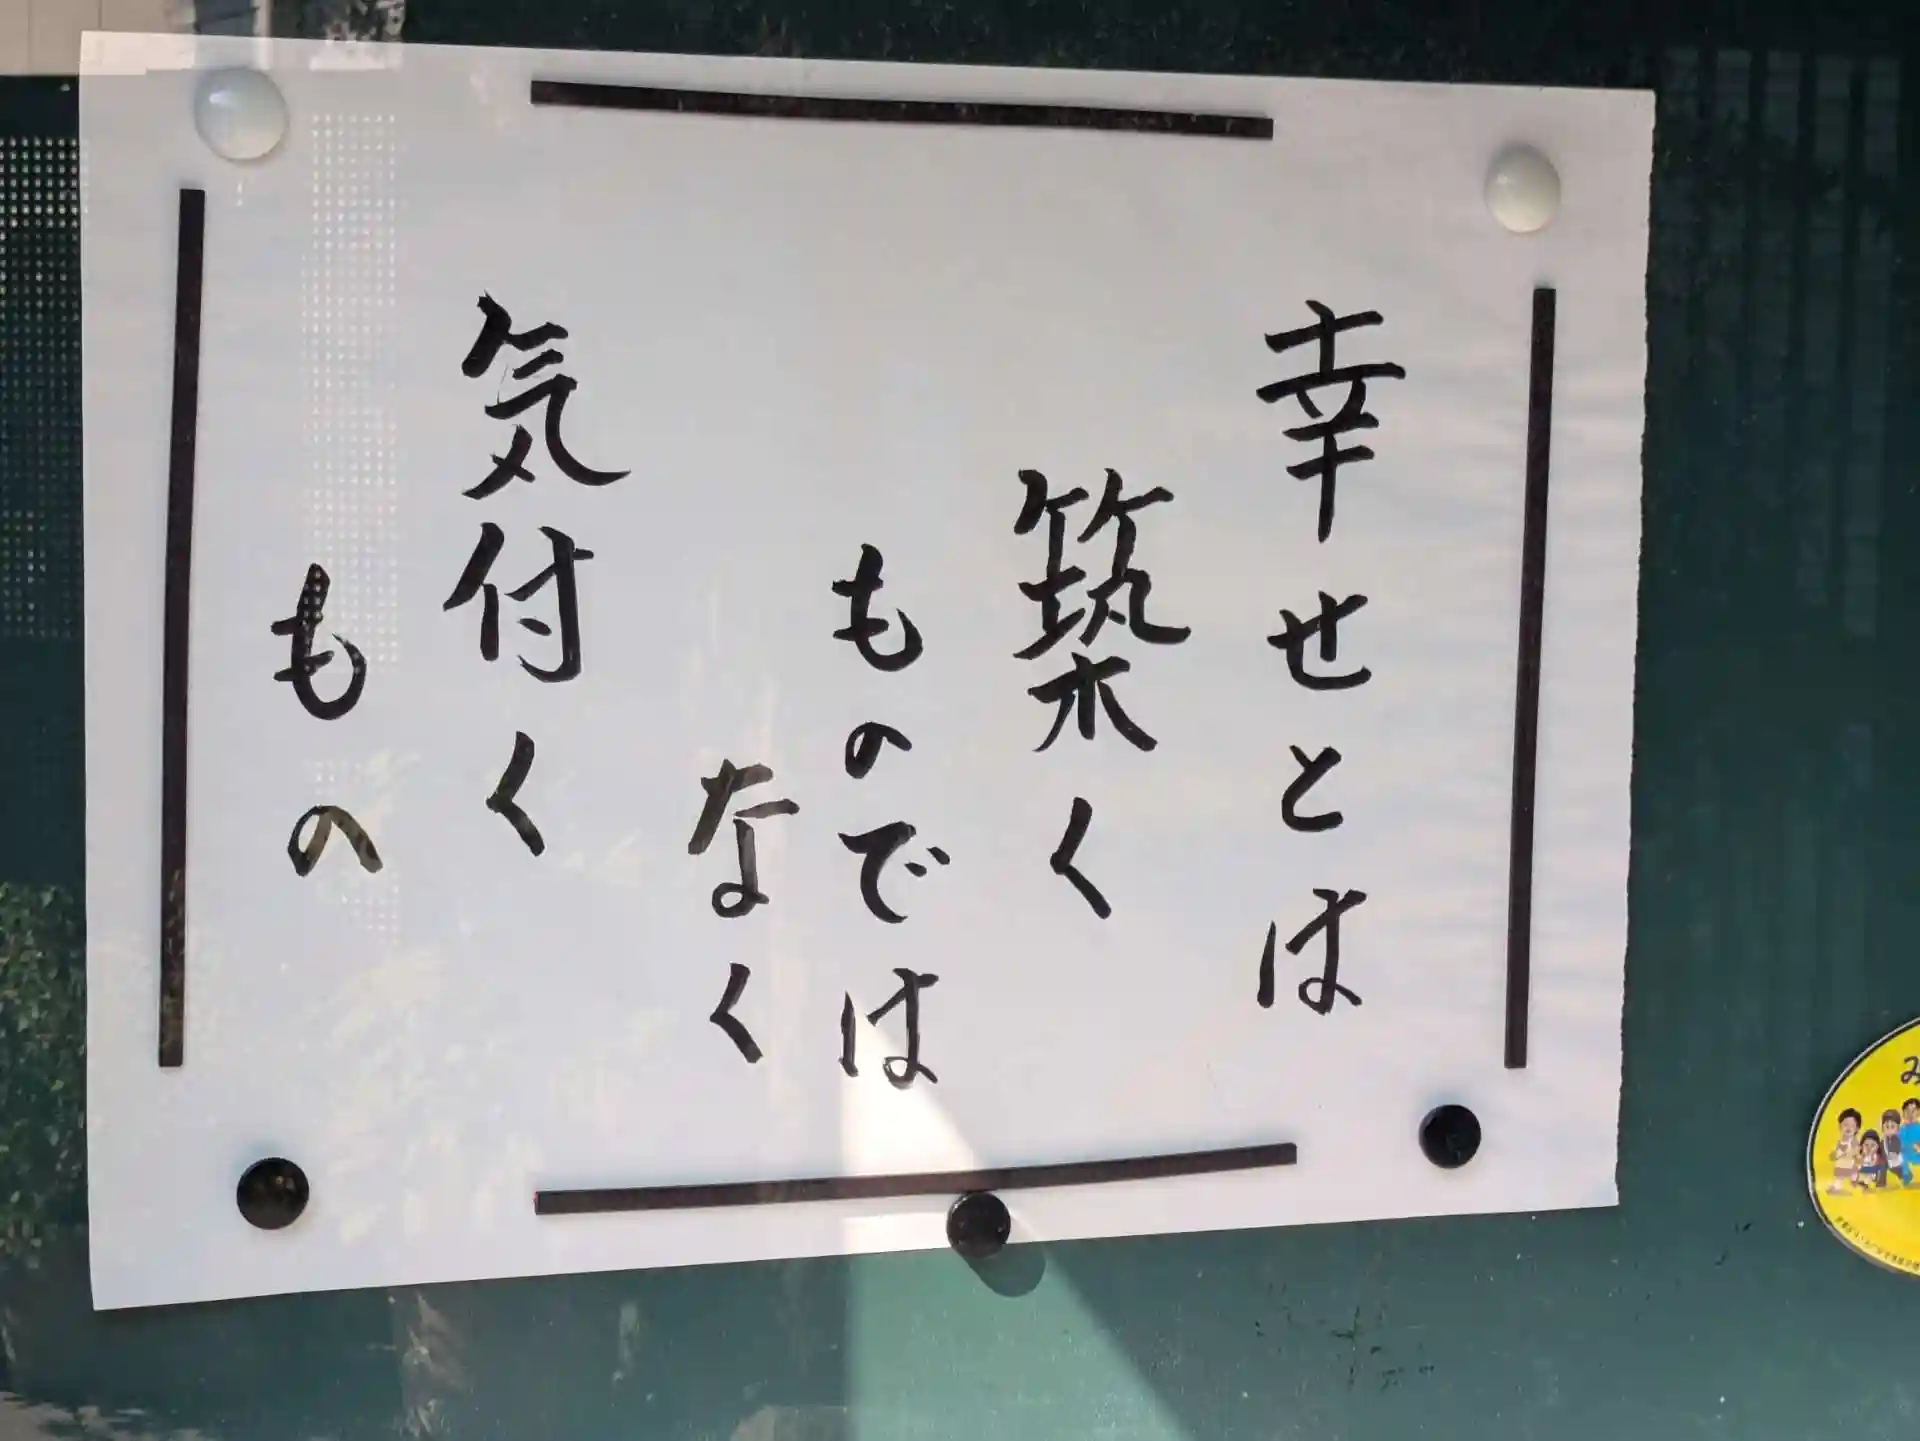 幸せとは
築く
ものでは
なく
気付く
もの
み